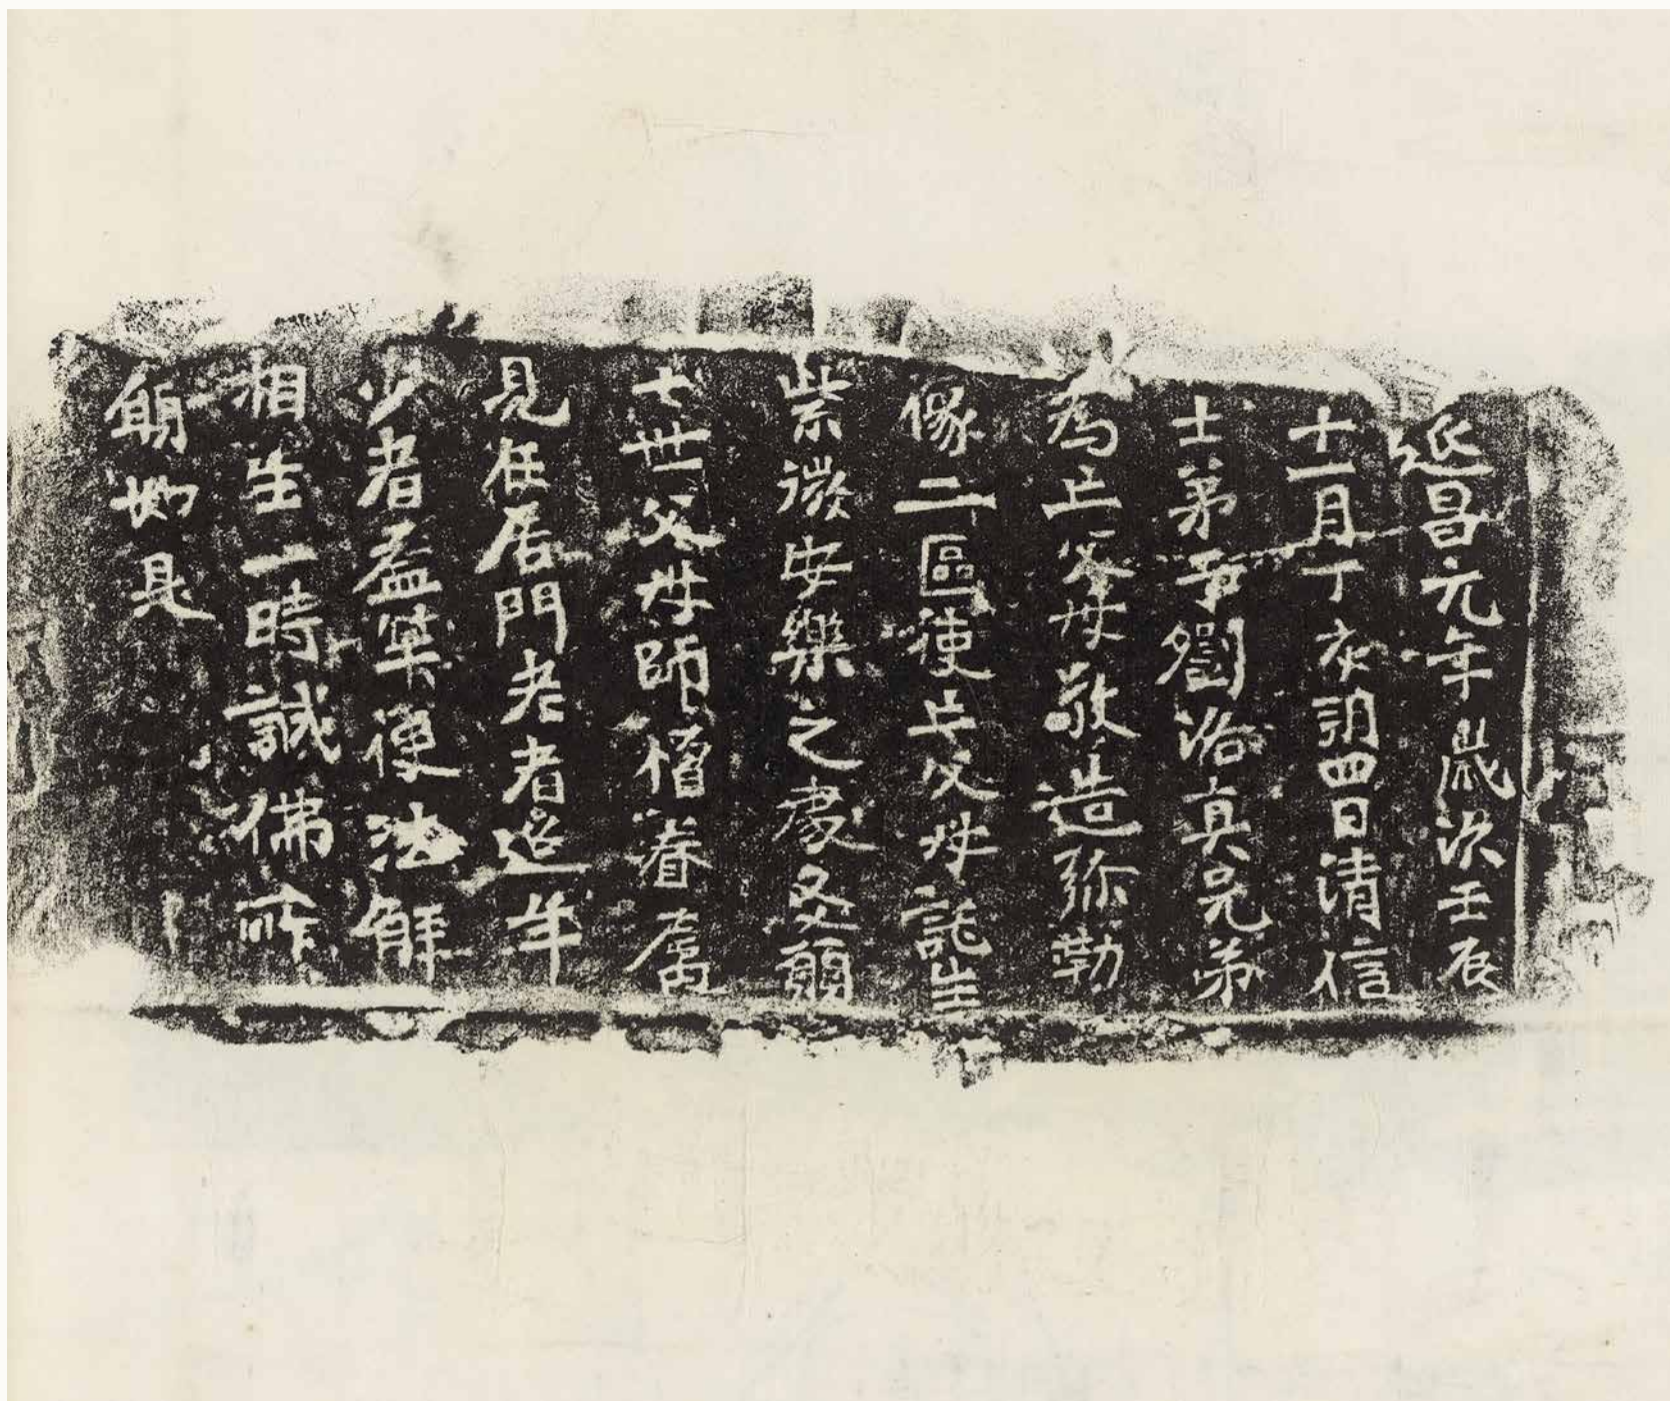 延昌元年歲次壬辰
十一月丁亥朔四日清信
士弟子劉洛真兄弟
為亡父母敬造弥勒
像二區使亡父母託生
紫微安樂之處又願
七世父母師僧眷屬
見在居門老者延年
少者益筭使法解
相生一時誠佛所
願如是